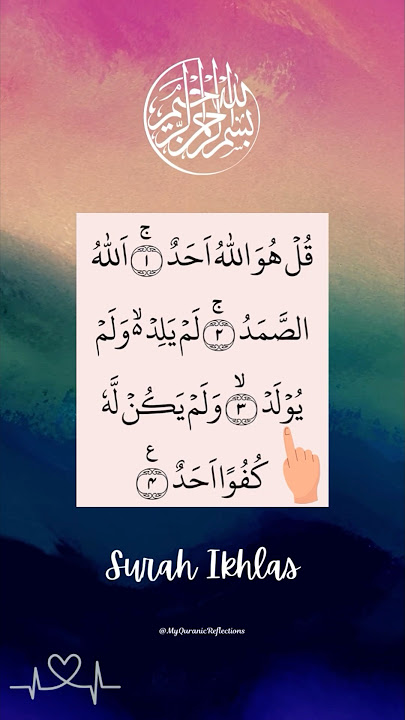 بسم الله الرحمن الرحيم
قُلۡ هُوَ اللّٰهُ اَحَدٌ ۚ‏﴿۱﴾ اَللّٰهُ
الصَّمَدُ ۚ‏﴿۲﴾ لَمۡ يَلِدۡ ۙ وَلَمۡ
يُوۡلَدۡ ۙ‏﴿۳﴾ وَلَمۡ يَكُنۡ لَّهٗ
كُفُوًا اَحَدٌ ﴿۴﴾ ع
Surah Ikhlas
@MyQuranicReflections